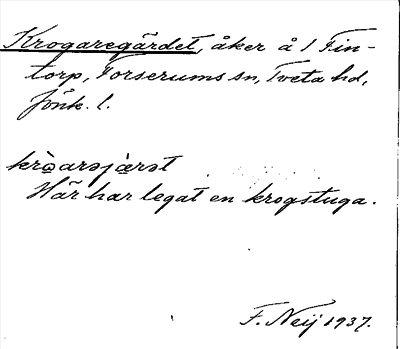 Krogaregärdet, åker å 1 Fin-
torp, Forserums sn, Tveta hd,
Jönk. l.
kròarəjàrət
Här har legat en krogstuga.
F. Neij 1937.